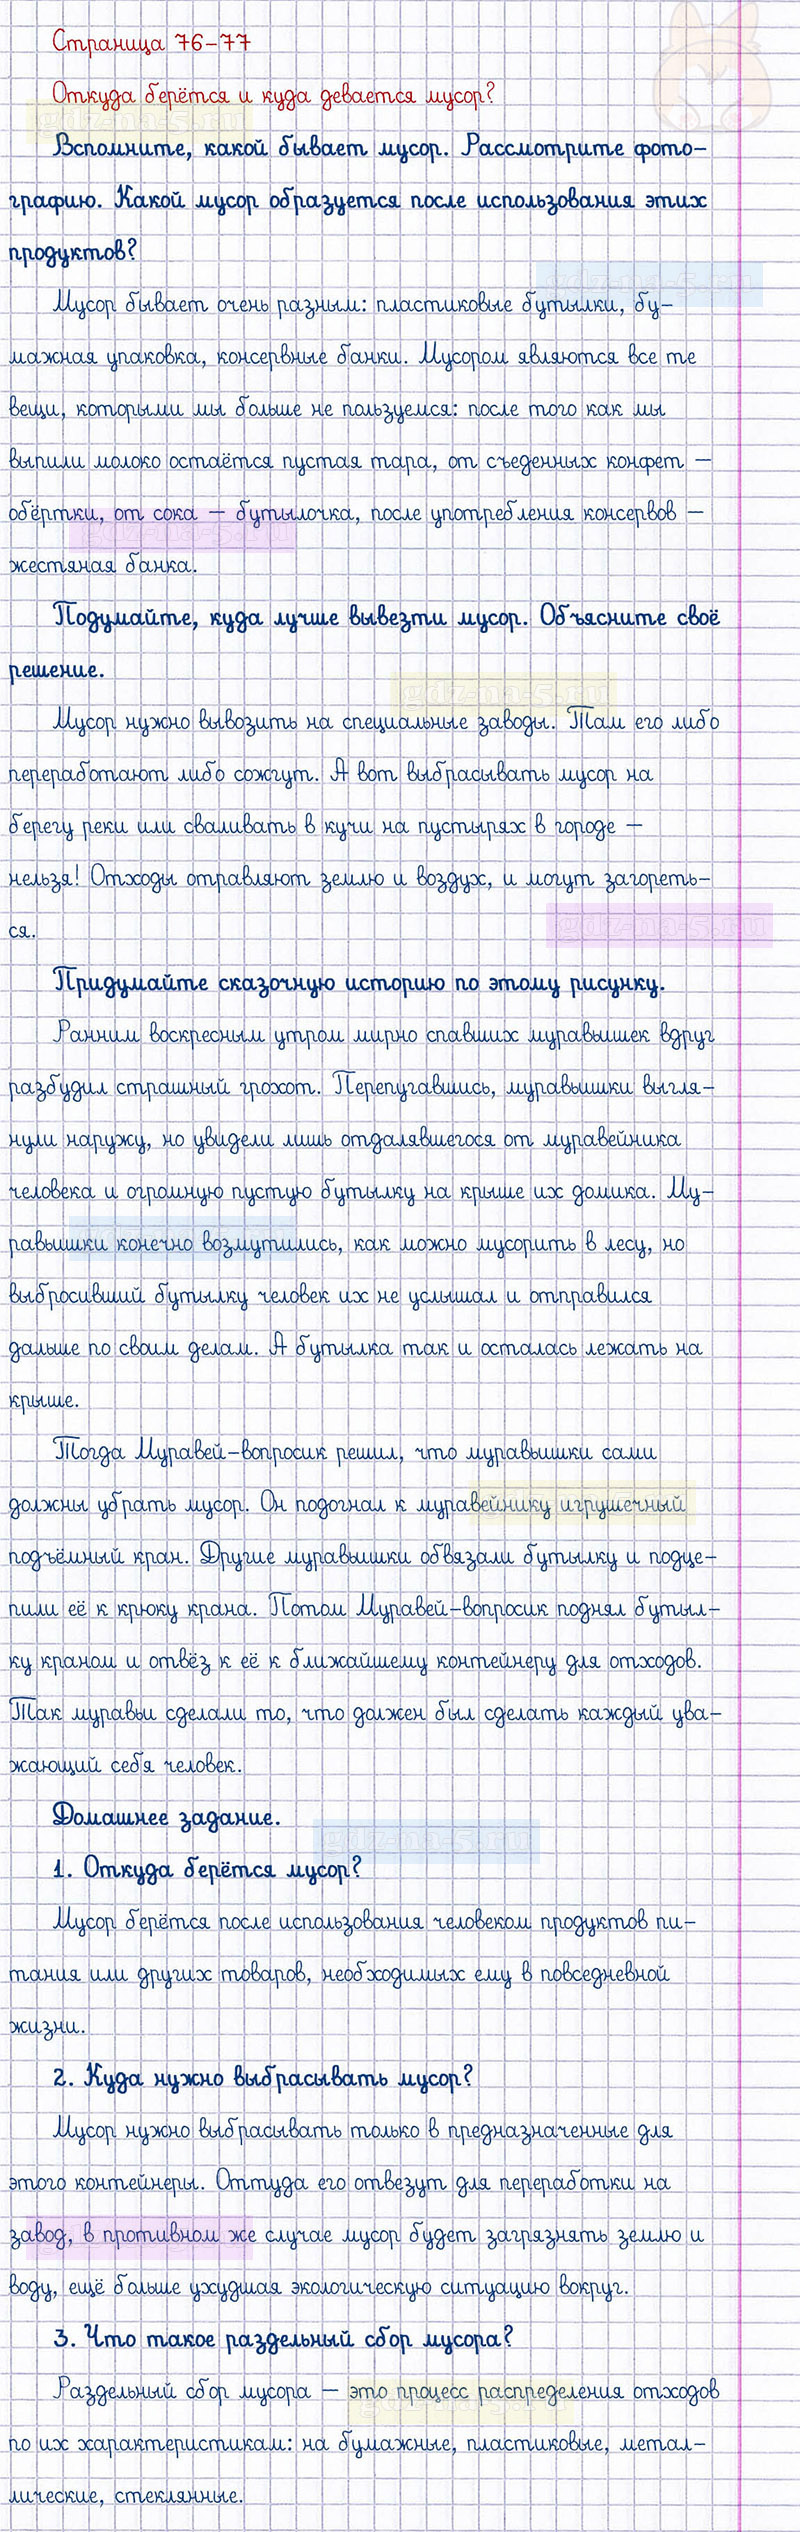 Страница 76-77
Откуда берётся и куда девается мусор?
gdz-na-5.ru
Вспомните, какой бывает мусор. Рассмотрите фото-
графию. Какой мусор образуется после использования этих
продуктов?
gdz-na-5.ru
Мусор бывает очень разным: пластиковые бутылки, бу-
мажная упаковка, консервные банки. Мусором являются все те
вещи, которыми мы больше не пользуемся: после того как мы
выпили молоко остаётся пустая тара, от съеденных конфет –
обёртки, от сока – бутылочка, после употребления консервов –
gdz-na-5.ru
жестяная банка.
Подумайте, куда лучше вывезти мусор. Объясните своё
решение.
gdz-na-5.ru
Мусор нужно вывозить на специальные заводы. Там его либо
переработают либо сожгут. А вот выбрасывать мусор на
берегу реки или сваливать в кучи на пустырях в городе –
нельзя! Отходы отравляют землю и воздух, и могут загореть-
ся.
gdz-na-5.ru
Придумайте сказочную историю по этому рисунку.
Ранним воскресным утром мирно спавших муравьишек вдруг
разбудил страшный грохот. Перепугавшись, муравьишки выгля-
нули наружу, но увидели лишь отдалявшегося от муравейника
человека и огромную пустую бутылку на крыше их домика. Му-
равьишки конечно возмутились, как можно мусорить в лесу, но
выбросивший бутылку человек их не услышал и отправился
дальше по своим делам. А бутылка так и осталась лежать на
крыше.
Тогда Муравей-вопросик решил, что муравьишки сами
должны убрать мусор. Он подогнал к муравейнику игрушечный
подъёмный кран. Другие муравьишки обвязали бутылку и подце-
пили её к крюку крана. Потом Муравей-вопросик поднял бутыл-
ку краном и отвёз к её к ближайшему контейнеру для отходов.
Так муравьи сделали то, что должен был сделать каждый ува-
жающий себя человек.
Домашнее задание.
gdz-na-5.ru
1. Откуда берётся мусор?
Мусор берётся после использования человеком продуктов пи-
тания или других товаров, необходимых ему в повседневной
жизни.
2. Куда нужно выбрасывать мусор?
Мусор нужно выбрасывать только в предназначенные для
этого контейнеры. Оттуда его отвезут для переработки на
завод, в противном же случае мусор будет загрязнять землю и
воду, ещё больше ухудшая экологическую ситуацию вокруг.
3. Что такое раздельный сбор мусора?
Раздельный сбор мусора – это процесс распределения отходов
по их характеристикам: на бумажные, пластиковые, метал-
лические, стеклянные.